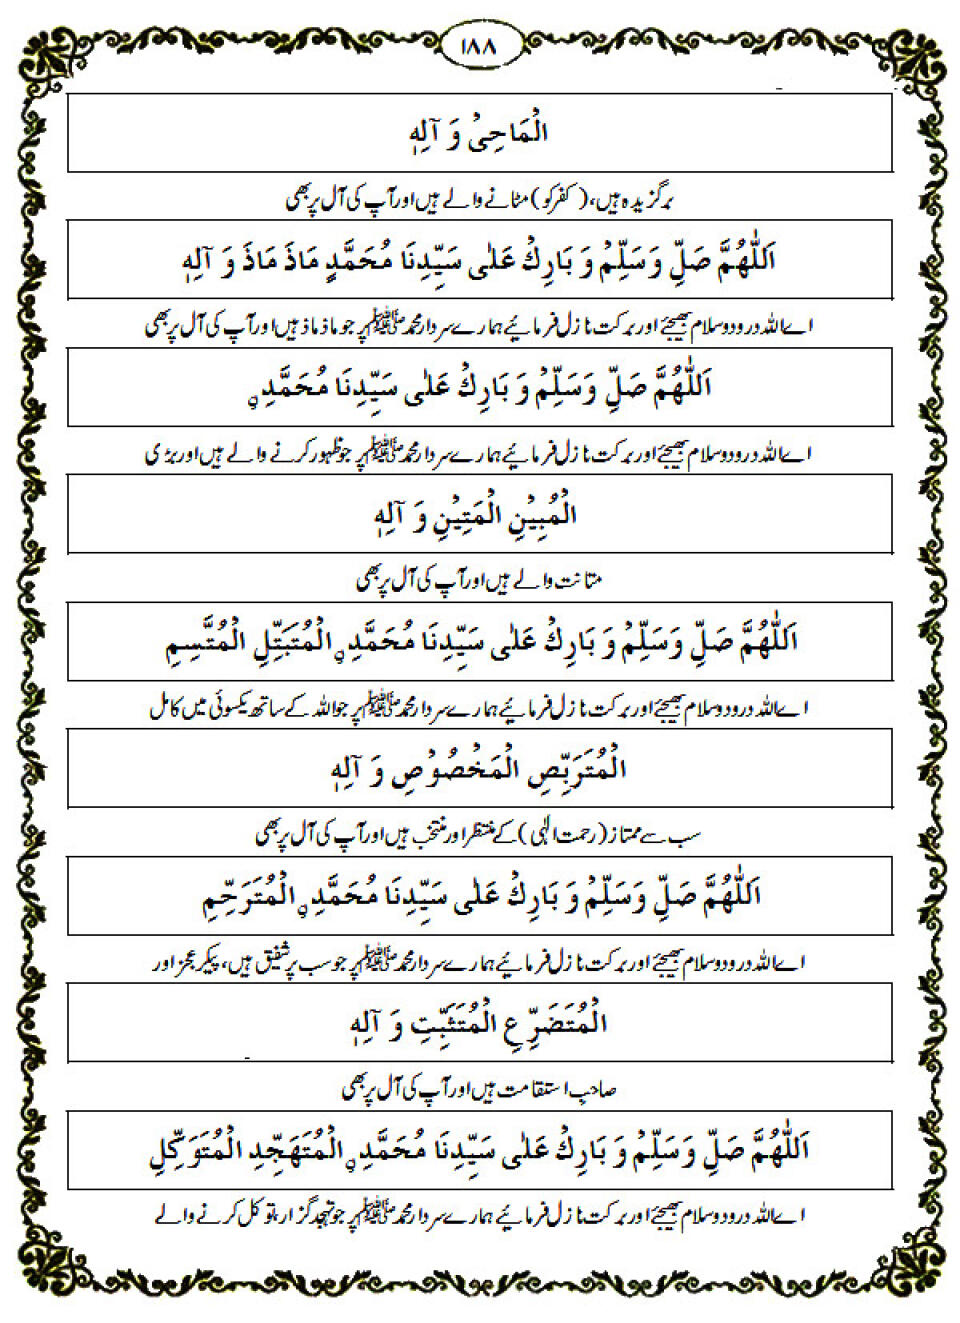 ١٨٨
الْمَاحِیْ وَ آلِهٖ
برگزیدہ ہیں، (کفر کو) مٹانے والے ہیں اور آپ کی آل پر بھی
اَللّٰهُمَّ صَلِّ وَسَلِّمْ وَ بَارِكْ عَلٰی سَيِّدِنَا مُحَمَّدٍ مَاذَ مَاذَ وَ آلِهٖ
اے اللہ درود و سلام بھیجئے اور برکت نازل فرمائیے ہمارے سردار محمد ﷺ پر جو ماذ ماذ ہیں اور آپ کی آل پر بھی
اَللّٰهُمَّ صَلِّ وَسَلِّمْ وَ بَارِكْ عَلٰی سَيِّدِنَا مُحَمَّدِ ۨ
اے اللہ درود و سلام بھیجئے اور برکت نازل فرمائیے ہمارے سردار محمد ﷺ پر جو ظہور کرنے والے ہیں اور بڑی
الْمُبِيْنِ الْمَتِيْنِ وَ آلِهٖ
متانت والے ہیں اور آپ کی آل پر بھی
اَللّٰهُمَّ صَلِّ وَسَلِّمْ وَ بَارِكْ عَلٰی سَيِّدِنَا مُحَمَّدِ ۨ الْمُتَبَتِّلِ الْمُتَّسِمِ
اے اللہ درود و سلام بھیجئے اور برکت نازل فرمائیے ہمارے سردار محمد ﷺ پر جو اللہ کے ساتھ یکسوئی میں کامل
الْمُتَرَبِّصِ الْمَخْصُوْصِ وَ آلِهٖ
سب سے ممتاز (رحمت الٰہی) کے منتظر اور منتخب ہیں اور آپ کی آل پر بھی
اَللّٰهُمَّ صَلِّ وَسَلِّمْ وَ بَارِكْ عَلٰی سَيِّدِنَا مُحَمَّدِ ۨ الْمُتَرَحِّمِ
اے اللہ درود و سلام بھیجئے اور برکت نازل فرمائیے ہمارے سردار محمد ﷺ پر جو سب پر شفیق ہیں، پیکر عجز اور
الْمُتَضَرِّعِ الْمُتَثَبِّتِ وَ آلِهٖ
صاحبِ استقامت ہیں اور آپ کی آل پر بھی
اَللّٰهُمَّ صَلِّ وَسَلِّمْ وَ بَارِكْ عَلٰی سَيِّدِنَا مُحَمَّدِ ۨ الْمُتَهَجِّدِ الْمُتَوَكِّلِ
اے اللہ درود و سلام بھیجئے اور برکت نازل فرمائیے ہمارے سردار محمد ﷺ پر جو تہجد گزار، توکل کرنے والے